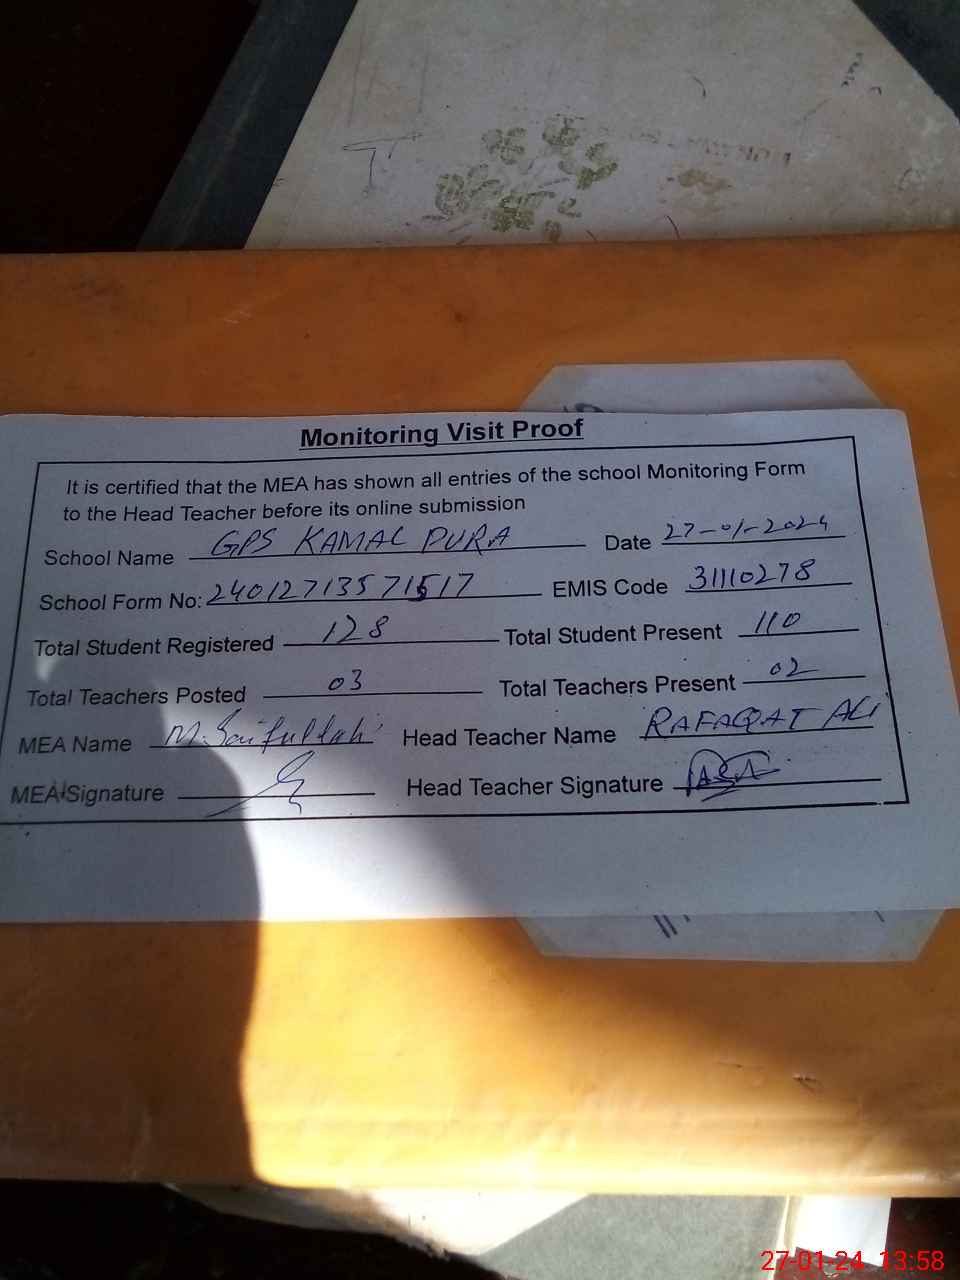 Monitoring Visit Proof
It is certified that the MEA has shown all entries of the school Monitoring Form
to the Head Teacher before its online submission
School Name GPS KAMAL PURA Date 27-01-2024
School Form No: 24012713571517 EMIS Code 31110278
Total Student Registered 128 Total Student Present 110
Total Teachers Posted 03 Total Teachers Present 02
MEA Name M. Saifullah Head Teacher Name RAFAQAT ALI
MEA Signature Head Teacher Signature
27-01-24 13:58